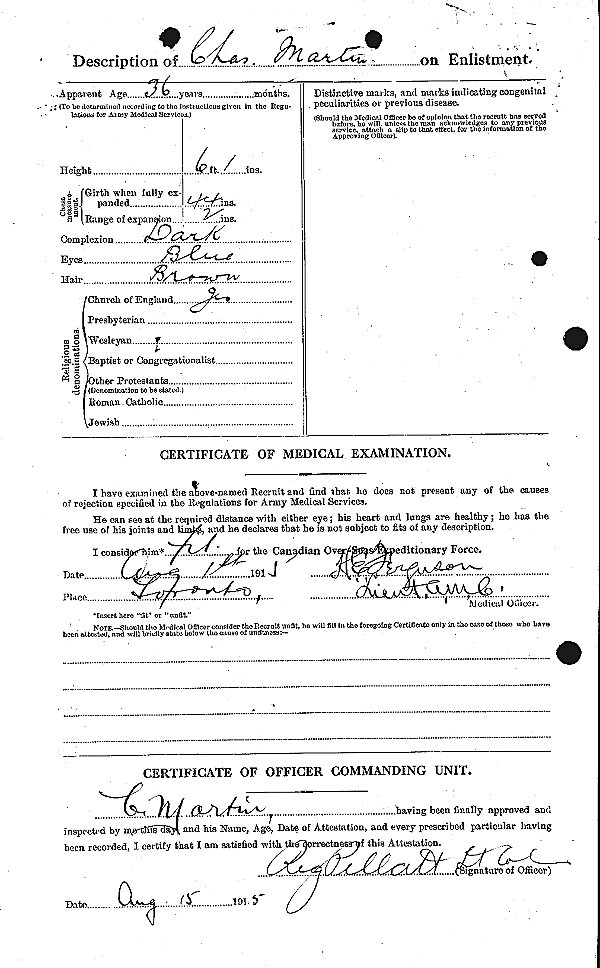 Description of Chas. Martin on Enlistment.
Apparent Age 36 years months.
(To be determined according to the instructions given in the Regulations for Army Medical Services.)
Height 6 ft. 1 ins.
Chest measurement.
Girth when fully expanded 44 ins.
Range of expansion 2 ins.
Complexion Dark
Eyes Blue
Hair Brown
Religious denominations.
Church of England
Presbyterian
Wesleyan
Baptist or Congregationalist
Other Protestants
(Denomination to be stated.)
Roman Catholic
Jewish
Distinctive marks, and marks indicating congenital
peculiarities or previous disease.
(Should the Medical Officer be of opinion that the recruit has served
before, he will, unless the man acknowledges to any previous
service, attach a slip to that effect, for the information of the
Approving Officer).
CERTIFICATE OF MEDICAL EXAMINATION.
I have examined the above-named Recruit and find that he does not present any of the causes
of rejection specified in the Regulations for Army Medical Services.
He can see at the required distance with either eye; his heart and lungs are healthy; he has the
free use of his joints and limbs, and he declares that he is not subject to fits of any description.
I consider him* fit for the Canadian Over-Seas Expeditionary Force.
Date Aug 1st 1915 Ferguson
Place Toronto, Lieut. A.M.C.
Medical Officer.
*Insert here "fit" or "unfit."
NOTE.—Should the Medical Officer consider the Recruit unfit, he will fill in the foregoing Certificate only in the case of those who have
been attested, and will briefly state below the cause of unfitness:—
CERTIFICATE OF OFFICER COMMANDING UNIT.
C. Martin, having been finally approved and
inspected by me this day, and his Name, Age, Date of Attestation, and every prescribed particular having
been recorded, I certify that I am satisfied with the correctness of this Attestation.
Reg Pellatt Lt Col (Signature of Officer)
Date Aug 15 1915